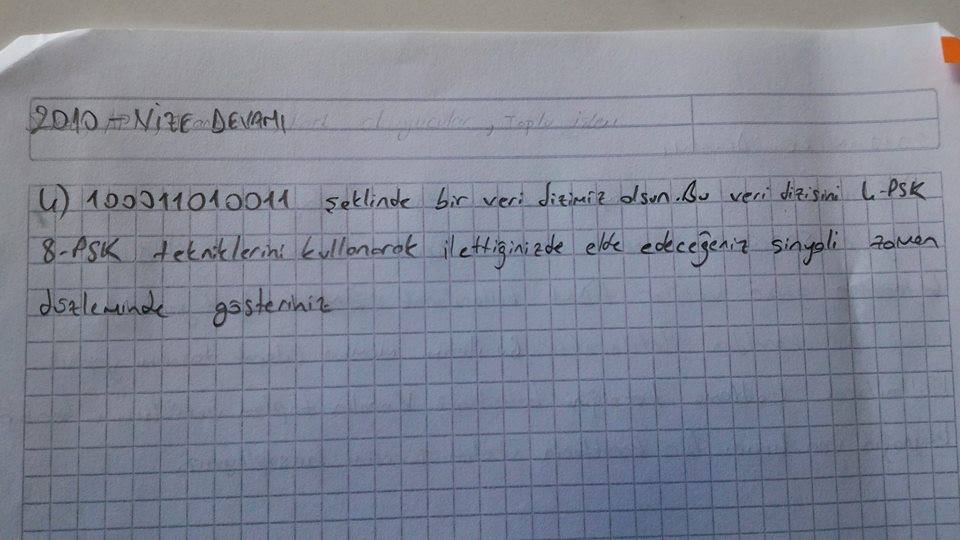 2010 - VİZE DEVAMI
4) 100011010011 şeklinde bir veri dizimiz olsun. Bu veri dizisini 4-PSK
8-PSK tekniklerini kullanarak ilettiğinizde elde edeceğeniz sinyali zaman
düzleminde gösteriniz